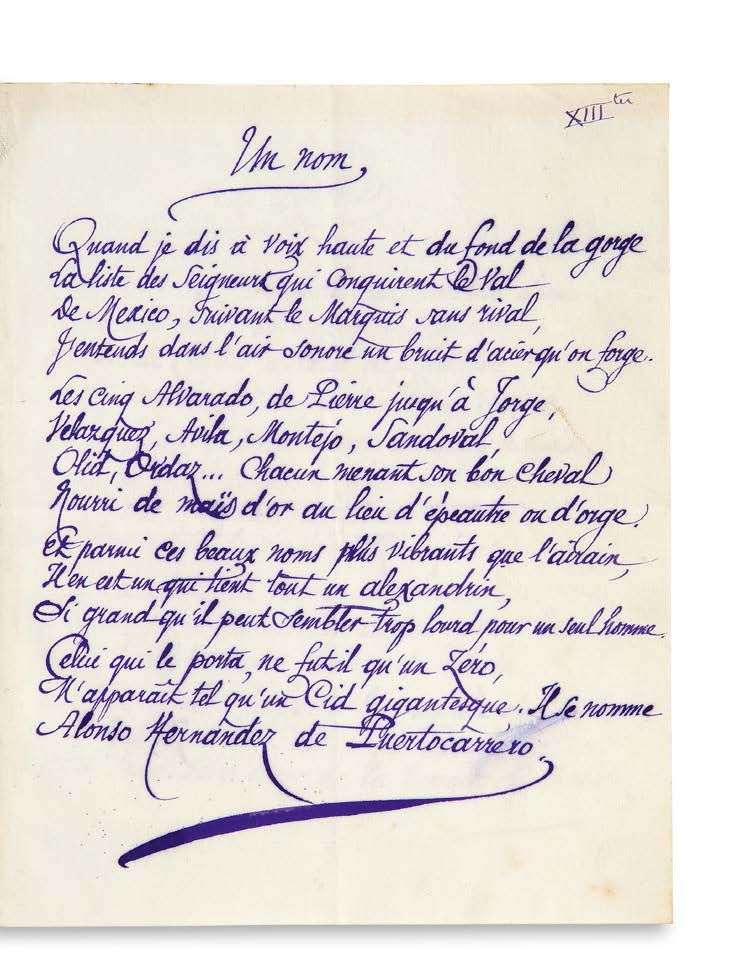 XIII ter
Un nom,
Quand je dis à voix haute et du fond de la gorge
La liste des Seigneurs qui conquirent le Val
De Mexico, suivant le Marquis sans rival,
J'entends dans l'air sonore un bruit d'acier qu'on forge.
Les cinq Alvarado, de Pierre jusqu'à Jorge,
Velazquez, Avila, Montejo, Sandoval,
Olid, Ordaz... Chacun menant son bon cheval
Nourri de maïs d'or au lieu d'épeautre ou d'orge.
Et parmi ces beaux noms plus vibrants que l'airain,
Il en est un qui tient tout un alexandrin,
Si grand qu'il peut sembler trop lourd pour un seul homme.
Celui qui le porta, ne fut-il qu'un Zéro,
M'apparaît tel qu'un Cid gigantesque. Il se nomme
Alonso Hernandez de Puertocarrero.